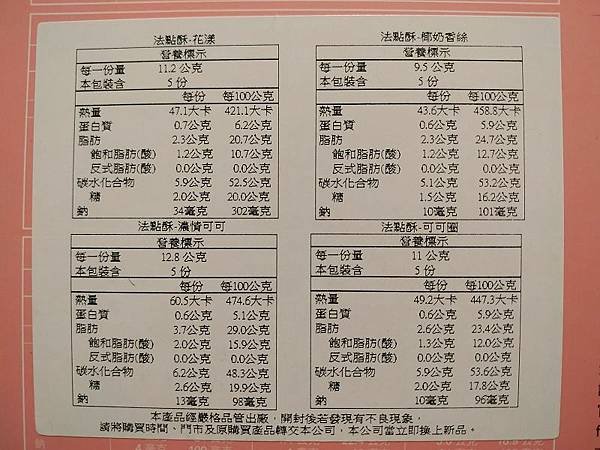 法點酥-花漾
營養標示
每一份量 11.2 公克
本包裝含 5 份
每份 每100公克
熱量 47.1大卡 421.1大卡
蛋白質 0.7公克 6.2公克
脂肪 2.3公克 20.7公克
飽和脂肪(酸) 1.2公克 10.7公克
反式脂肪(酸) 0.0公克 0.0公克
碳水化合物 5.9公克 52.5公克
糖 2.0公克 20.0公克
鈉 34毫克 302毫克
法點酥-椰奶香絲
營養標示
每一份量 9.5 公克
本包裝含 5 份
每份 每100公克
熱量 43.6大卡 458.8大卡
蛋白質 0.6公克 5.9公克
脂肪 2.3公克 24.7公克
飽和脂肪(酸) 1.2公克 12.7公克
反式脂肪(酸) 0.0公克 0.0公克
碳水化合物 5.1公克 53.2公克
糖 1.5公克 16.2公克
鈉 10毫克 101毫克
法點酥-濃情可可
營養標示
每一份量 12.8 公克
本包裝含 5 份
每份 每100公克
熱量 60.5大卡 474.6大卡
蛋白質 0.6公克 5.1公克
脂肪 3.7公克 29.0公克
飽和脂肪(酸) 2.0公克 15.9公克
反式脂肪(酸) 0.0公克 0.0公克
碳水化合物 6.2公克 48.3公克
糖 2.6公克 19.9公克
鈉 13毫克 98毫克
法點酥-可可圈
營養標示
每一份量 11 公克
本包裝含 5 份
每份 每100公克
熱量 49.2大卡 447.3大卡
蛋白質 0.6公克 5.9公克
脂肪 2.6公克 23.4公克
飽和脂肪(酸) 1.3公克 12.0公克
反式脂肪(酸) 0.0公克 0.0公克
碳水化合物 5.9公克 53.6公克
糖 2.0公克 17.8公克
鈉 10毫克 96毫克
本產品經嚴格品管出廠，開封後若發現有不良現象，
請將購買時間、門市及原購買產品轉交本公司，本公司當立即換上新品。